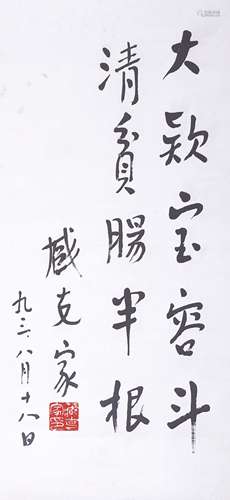 大欵宝容斗
清貧腸半根
臧克家
九三、八月十八日